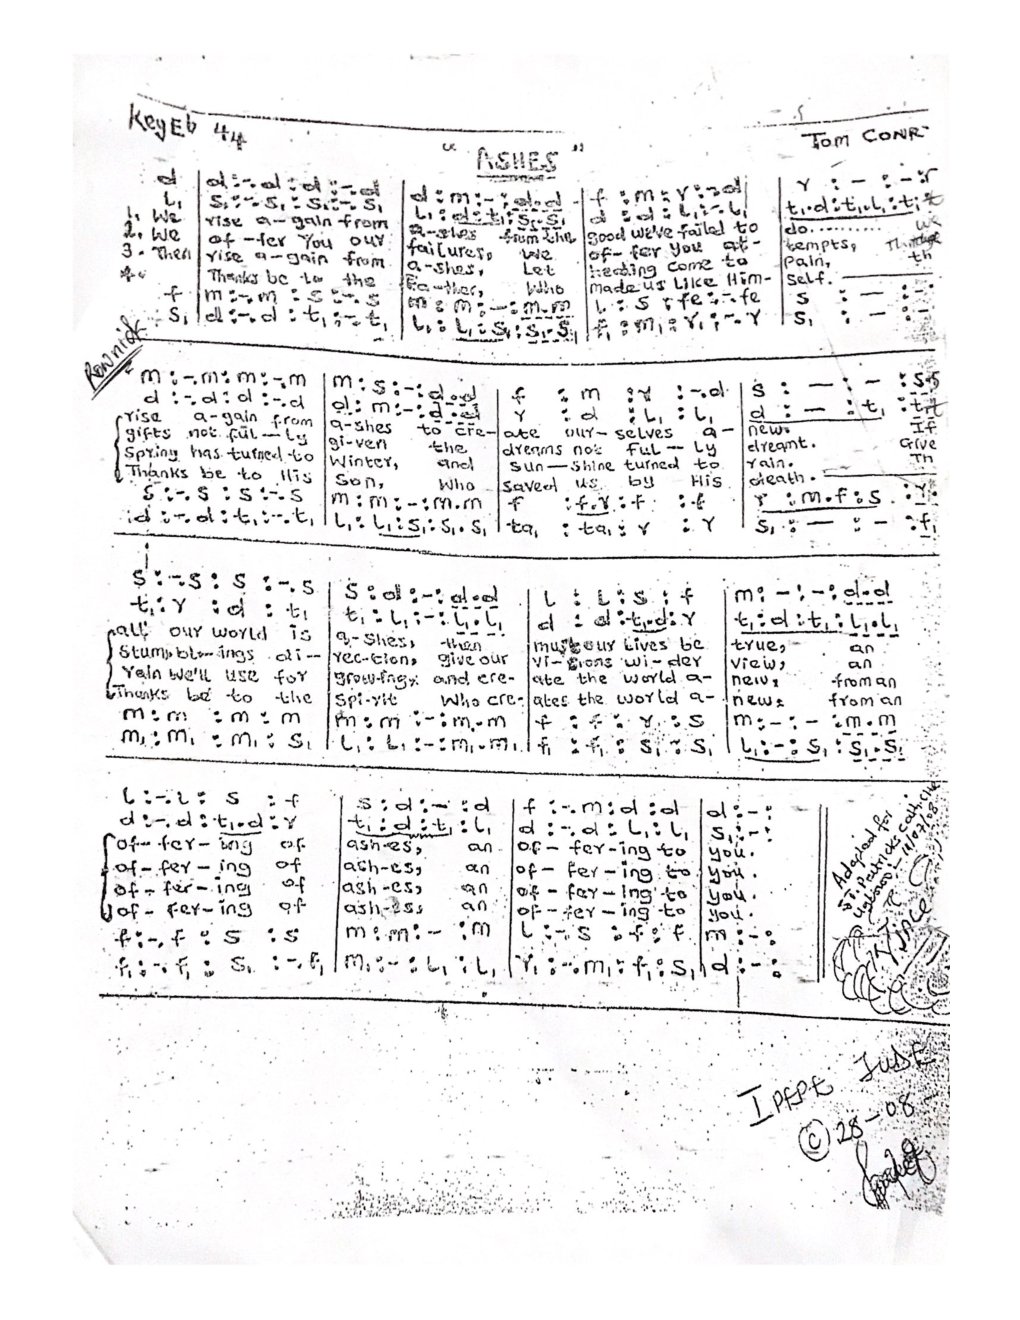 Key Eb 44
"ASHES"
TOM CONR
d | d:-.d:d:-.d | d:m:-:d.d | f:m:r:-.d | r:-:-:-.r
l₁ | s₁:-.s₁:s₁:-.s₁ | l₁:d:t₁:s₁.s₁ | d:d:l₁:-.l₁ | t₁.d:t₁.l₁:t₁:t
1. We | rise a-gain from | a-shes from the | good we've failed to | do......... We
2. We | of-fer You our | failures, We | of-fer you at- | tempts,
3. Then | rise a-gain from | a-shes, Let | healing come to | pain, th
4. | Thanks be to the | Fa-ther, Who | made us Like Him- | self.
f | m:-.m:s:-.s | m:m:-:m.m | l:s:fe:-.fe | s:-:-:-
s₁ | d:-.d:t₁:-.t₁ | l₁:l₁:s₁:s₁.s₁ | f₁:m₁:r₁:-.r | s₁:-:-:-
m:-.m:m:-.m | m:s:-:d.d | f:m:r:-.d | s:-:-:s.s
d:-.d:d:-.d | d:m:-:d.d | r:d:l₁:l₁ | d:-:t₁:t.t
rise a-gain from | a-shes to cre- | ate our-selves a- | new. If
gifts not ful-ly | gi-ven the | dreams not ful-ly | dreamt. Give
Spring has turned to | Winter, and | sun-shine turned to | rain. Th
Thanks be to His | Son, Who | saved us by His | death.
s:-.s:s:-.s | m:m:-:m.m | f:f.r:f:f | r:m.f:s:r
d:-.d:t₁:-.t₁ | l₁:l₁:s₁:s₁.s₁ | ta₁:ta₁:r:r | s₁:-:-:f₁
s:-.s:s:-.s | s:d:-:d.d | l:l:s:f | m:-:-:d.d
t₁:r:d:t₁ | t₁:l₁:-:l₁.l₁ | d:d:t₁.d:r | t₁:d:t₁:l₁.l₁
all our world is | a-shes, then | must our Lives be | true, an
Stumbl-ings di- | rec-tion, give our | vi-sions wi-der | view, an
rain We'll use for | growing, and cre- | ate the world a- | new, from an
Thanks be to the | Spi-rit Who cre- | ates the world a- | new, from an
m:m:m:m | m:m:-:m.m | f:f:r:s | m:-:-:m.m
m₁:m₁:m₁:s₁ | l₁:l₁:-:m₁.m₁ | f₁:f₁:s₁:s₁ | l₁:-:s₁:s₁.s₁
l:-.l:s:f | s:d:-:d | f:-.m:d:d | d:-:
d:-.d:t₁.d:r | t₁:d:t₁:l₁ | d:-.d:l₁:l₁ | s₁:-:
of-fer-ing of | ash-es, an | of-fer-ing to | you.
of-fer-ing of | ash-es, an | of-fer-ing to | you.
of-fer-ing of | ash-es, an | of-fer-ing to | you.
of-fer-ing of | ash-es, an | of-fer-ing to | you.
f:-.f:s:s | m:m:-:m | l:-.s:f:f | m:-:
f₁:-.f₁:s₁:-.f₁ | m₁:-:l₁:l₁ | r₁:-.m₁:f₁:s₁ | d:-:
Adapted for
St. Patrick's Cath.
JUDE
© 28-08-